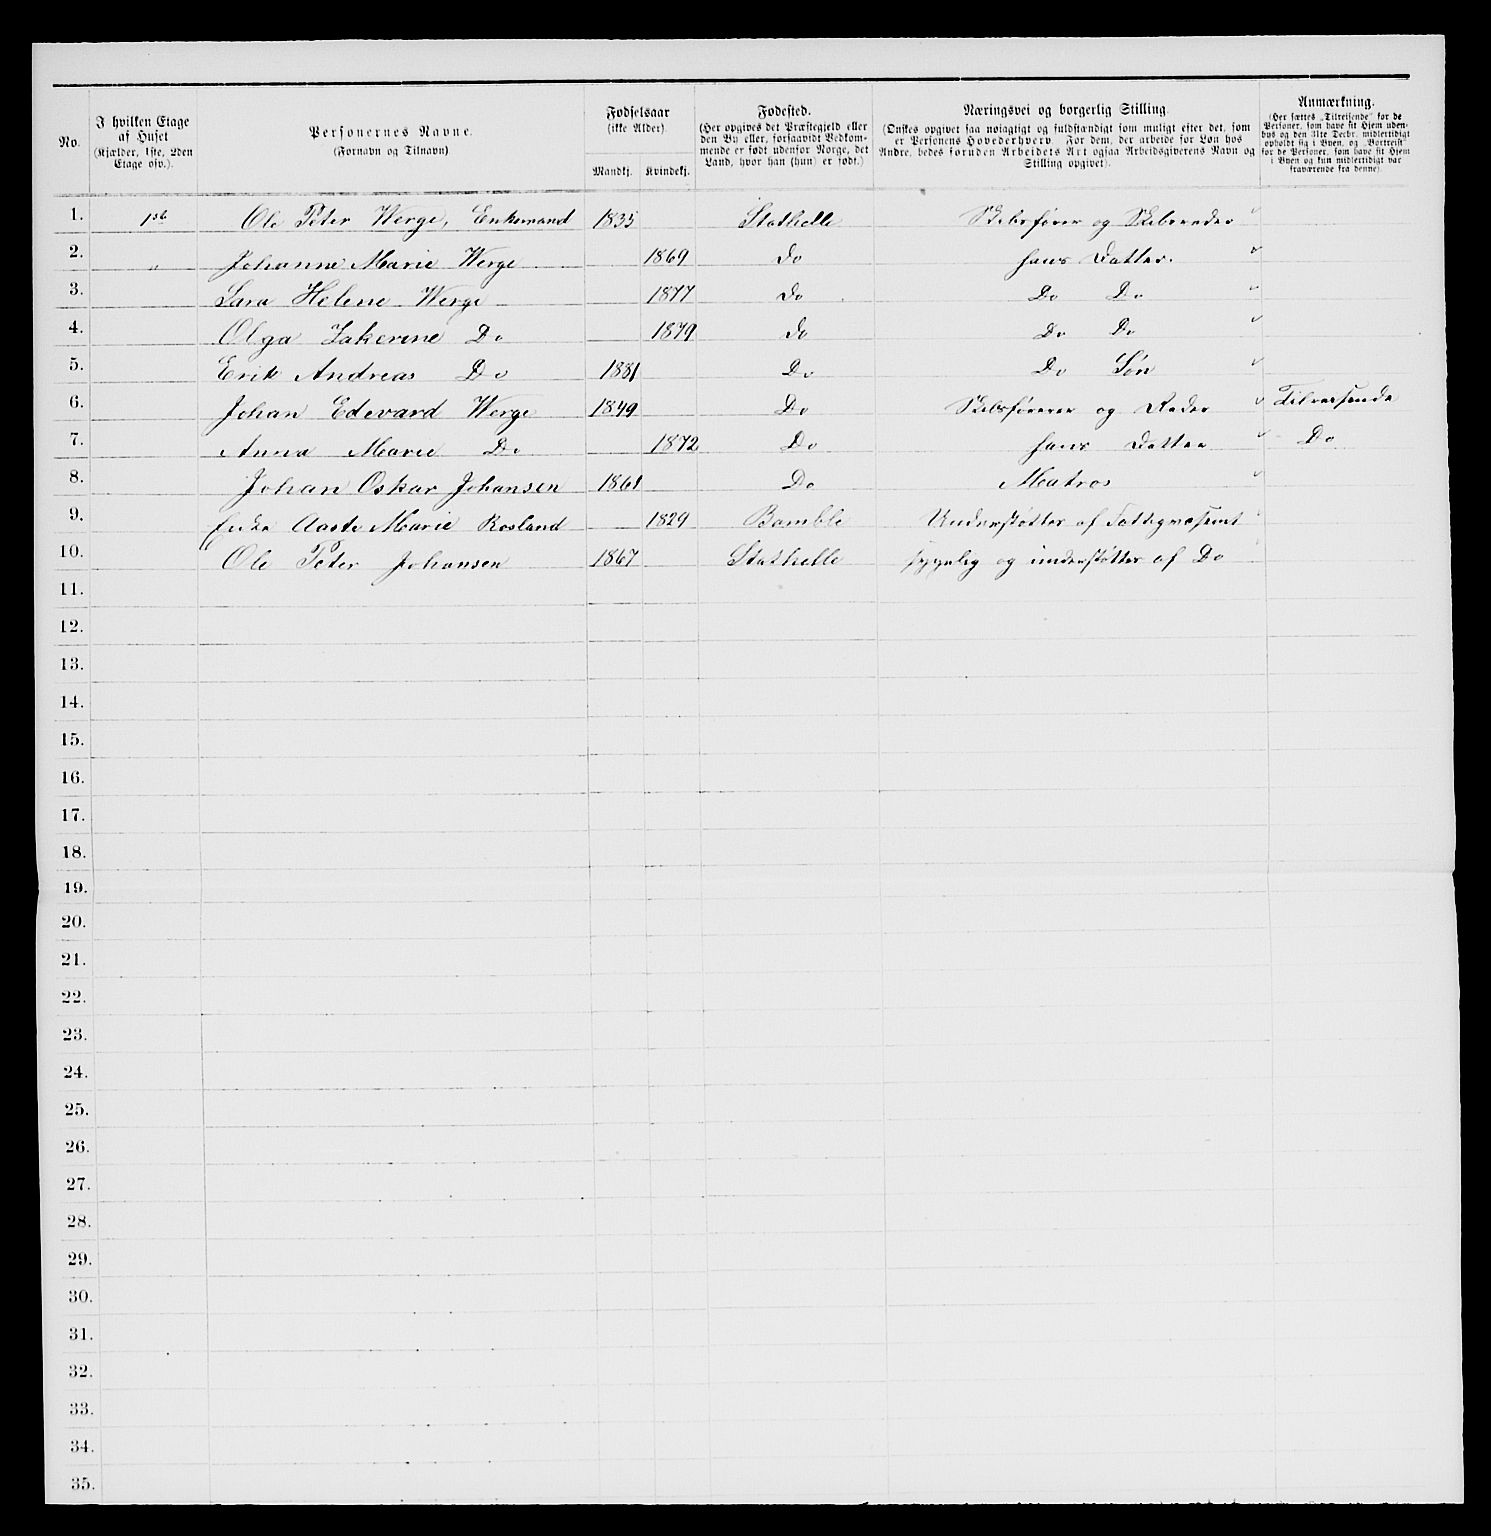 No.
I hvilken Etage af Huset (Kjælder, 1ste, 2den Etage osv.).
Personernes Navne. (Fornavn og Tilnavn)
Fødselsaar (ikke Alder).
Mandkj. Kvindekj.
Fødested. (Her opgives det Præstegjeld eller den By eller, forsaavidt Vedkommende er født udenfor Norge, det Land, hvor han (hun) er født.)
Næringsvei og borgerlig Stilling. (Ønskes opgivet saa nøiagtigt og fuldstændigt som muligt efter det, som er Personens Hovederhverv. For dem, der arbeide for Løn hos Andre, bedes foruden Arbeidets Art ogsaa Arbeidsgiverens Navn og Stilling opgivet).
Anmærkning. (Her sættes „Tilreisende“ for de Personer, som have sit Hjem udenbys og den 31te Decbr. midlertidigt opholdt sig i Byen, og „Bortreist“ for de Personer, som have sit Hjem i Byen og kun midlertidigt var fraværende fra denne).
1. 1st Ole Peter Werge, Enkemand 1835 Stathelle Skibsfører og Skibsreder
2. „ Johanne Marie Werge 1869 Do hans Datter.
3. Sara Helene Werge 1877 Do Do Do
4. Olga Zakerine Do 1879 Do Do Do
5. Erik Andreas Do 1881 Do Do Søn
6. Johan Edevard Werge 1849 Do Skibsfører og Reder Tilreisende
7. Anna Marie Do 1872 Do hans Datter Do
8. Johan Oskar Johansen 1861 Do Matros
9. Enke Aaste Marie Rosland 1829 Bamble Understøttes af Fattigvæsenet
10. Ole Peter Johansen 1867 Stathelle sygelig og understøttes af Do
11.
12.
13.
14.
15.
16.
17.
18.
19.
20.
21.
22.
23.
24.
25.
26.
27.
28.
29.
30.
31.
32.
33.
34.
35.